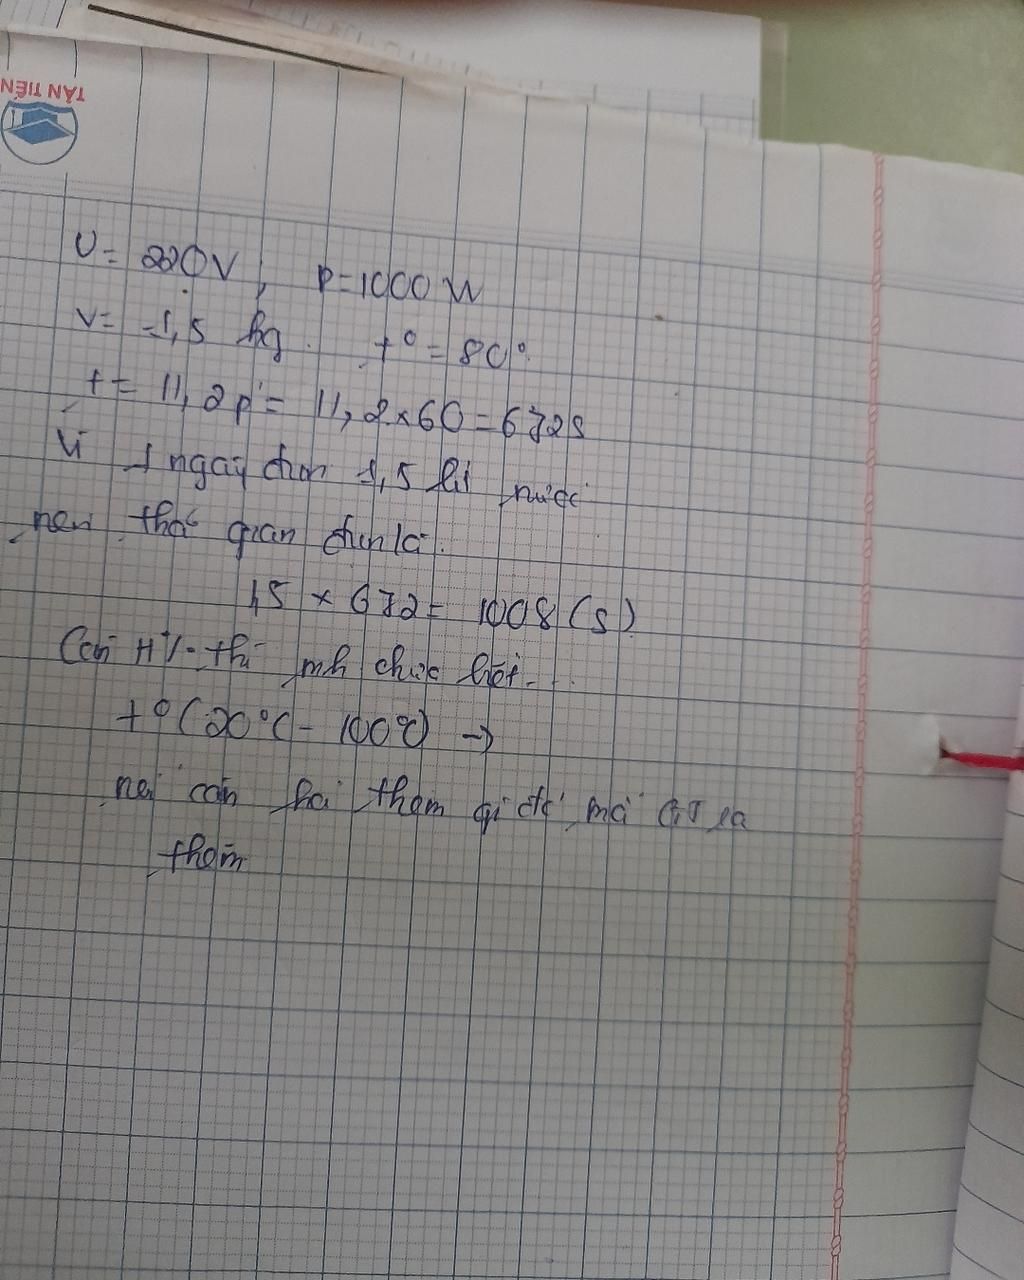 TÂN TIẾN
U = 220V, P = 1000 W
V = 1,5 kg. t° = 80°.
t = 11,2p' = 11,2 x 60 = 672s
Vì 1 ngày đun 1,5 lít nước
nên thời gian đun là:
1,5 x 672 = 1008 (s)
Còn H% thì mh chưa biết...
t° (20°C - 100°C) →
nếu cần hỏi thêm gì
thêm